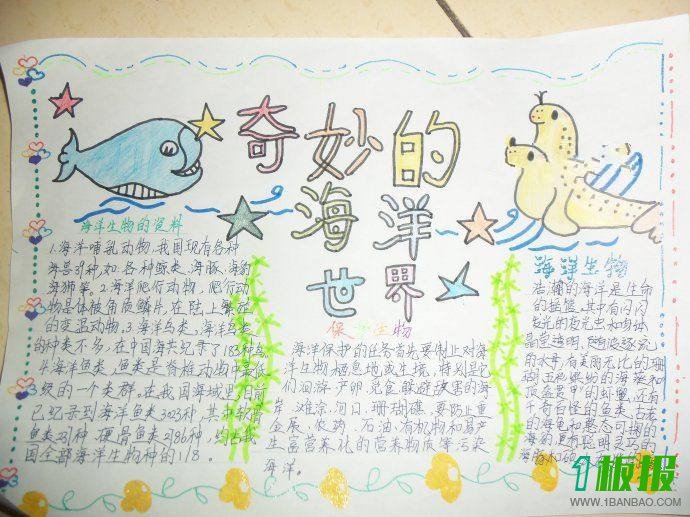 奇妙的
海洋
世界
海洋生物的资料
1.海洋哺乳动物,我国现有各种
海兽39种,如各种鲸类、海豚、海豹
海狮等。2.海洋爬行动物,爬行动
物是体被角质鳞片,在陆上繁殖
的变温动物。3.海洋鸟类,海洋鸟类
的种类不多,在中国海共纪录了183种鸟
4.海洋鱼类,鱼类是脊椎动物中最低
级的一个类群。在我国海域里,目前
已纪录到海洋鱼类3023种,其中软骨
鱼类237种,硬骨鱼类2786种,约占我
国全部海洋生物种的1/8。
保 生物
海洋保护的任务首先要制止对海
洋生物栖息地或生境,特别是它
们洄游、产卵、觅食、躲避敌害的海
岸、滩涂、河口、珊瑚礁,要防止重
金属、农药、石油、有机物和易产
生富营养化的营养物质等污染
海洋。
海洋生物
浩瀚的海洋是生命
的摇篮。其中有闪闪
发光的夜光虫和身体
晶莹透明、随波逐流
的水母,有美丽无比的珊
有奇奇怪怪的鱼类,古老
的海龟和憨态可掬的
海豹,更有聪明灵巧的
1板报
WWW.1BANBAO.COM